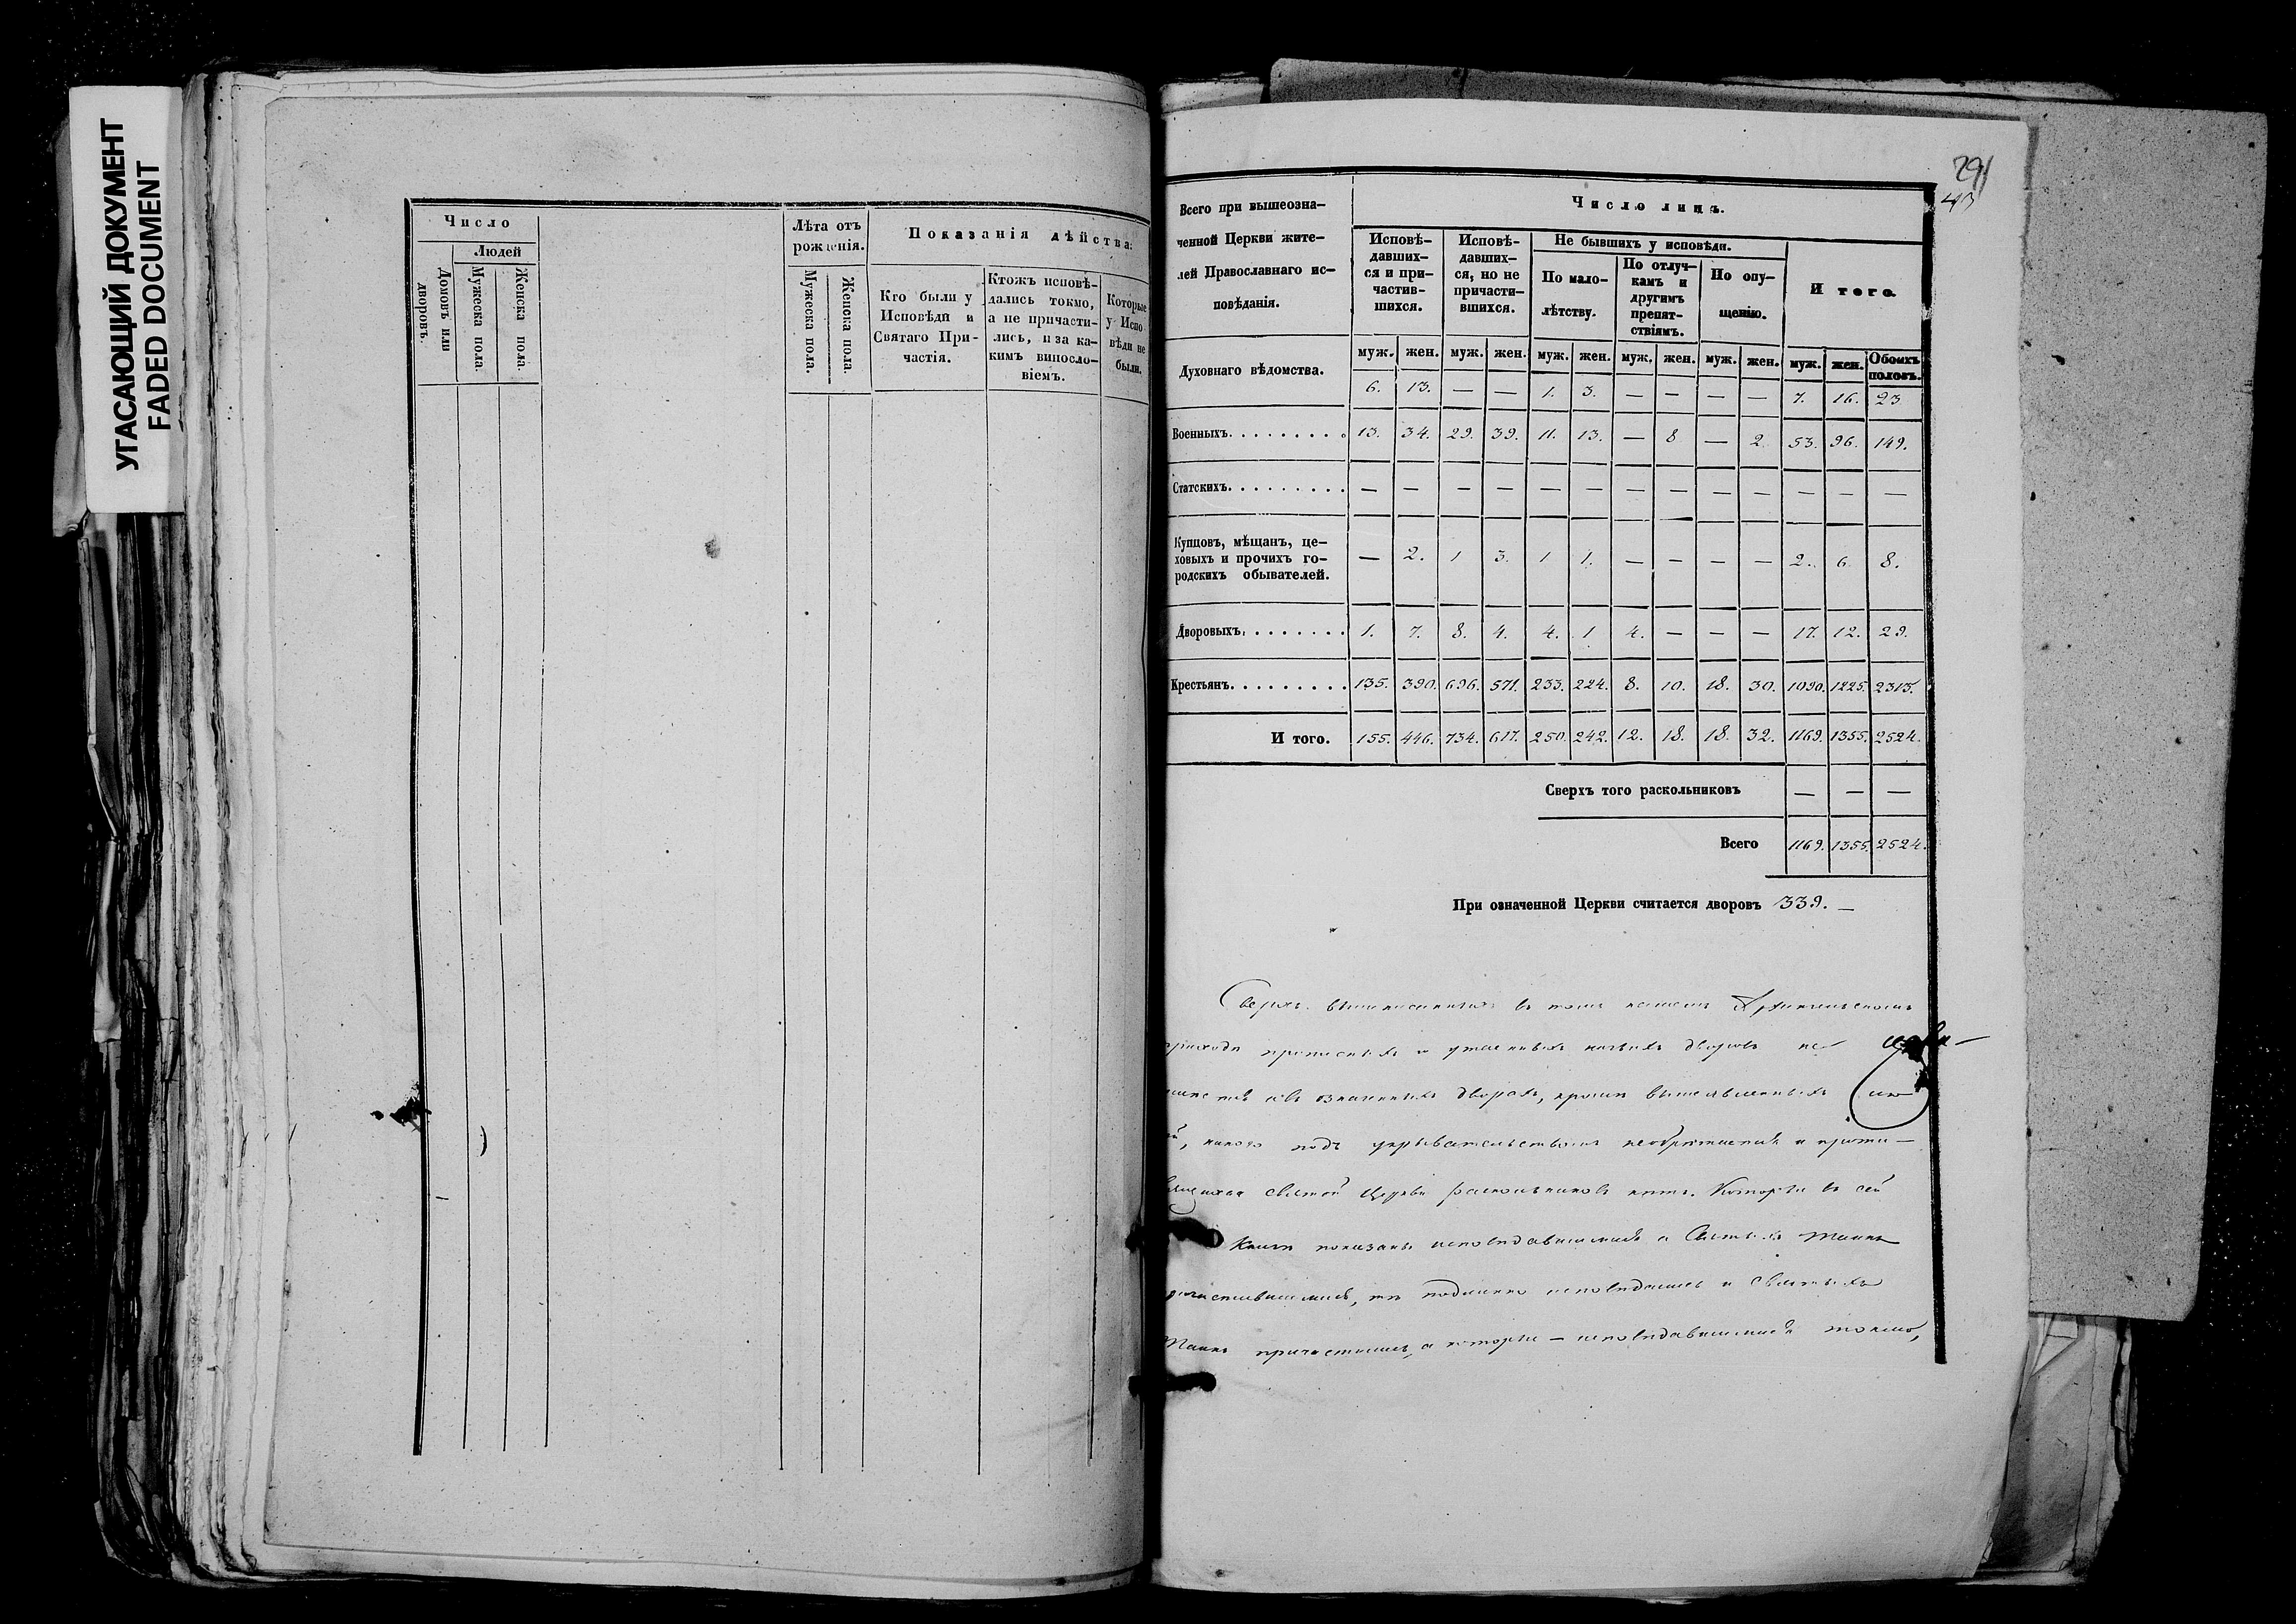 УГАСАЮЩИЙ ДОКУМЕНТ
FADED DOCUMENT
Число
Людей
Домовъ или дворовъ.
Мужеска пола.
Женска пола.
Лѣта отъ
рожденія.
Мужеска пола.
Женска пола.
Показанія дѣйства:
Кто были у
Исповѣди и
Святаго При-
частія.
Ктожъ исповѣ-
дались токмо,
а не причасти-
лись, и за ка-
кимъ виносло-
віемъ.
Которые
у Испо-
вѣди не
были.
291
43
Всего при вышеозна-
ченной Церкви жите-
лей Православнаго ис-
повѣданія.
Число лицъ.
Исповѣ-
давших-
ся и при-
частив-
шихся.
Исповѣ-
давших-
ся, но не
причасти-
вшихся.
Не бывшихъ у исповѣди.
По мало-
лѣтству.
По отлуч-
камъ и
другимъ
препят-
ствіямъ.
По опу-
щенію.
И того.
муж. жен. муж. жен. муж. жен. муж. жен. муж. жен. муж. жен. Обоихъ половъ.
Духовнаго вѣдомства. 6. 13. — — 1. 3. — — — — 7. 16. 23
Военныхъ......... 13. 34. 29. 39. 11. 13. — 8 — 2. 53. 96. 149.
Статскихъ......... — — — — — — — — — — — — —
Купцовъ, мѣщанъ, це-
ховыхъ и прочихъ го-
родскихъ обывателей. — 2. 1 3. 1 1. — — — — 2. 6 8.
Дворовыхъ........ 1. 7. 8. 4. 4. 1 4. — — — 17. 12. 29.
Крестьянъ......... 135. 390. 696. 571. 233. 224. 8. 10. 18. 30. 1090. 1225. 2315.
И того. 155. 446. 734. 617. 250. 242. 12. 18. 18. 32. 1169. 1355. 2524.
Сверхъ того раскольниковъ — — —
Всего 1169. 1355. 2524.
При означенной Церкви считается дворовъ 339. —
Сверхъ вышеписанныхъ въ томъ нашемъ Архангельскомъ
приходѣ прописныхъ и утаенныхъ дворовъ не
означенныхъ дворахъ, кромѣ вышеявленныхъ лю
никого подъ укрывательствомъ и
святой Церкви раскольниковъ нѣтъ. Которые въ сей
Книгѣ показаны исповѣдавшимися и Святыхъ Таинъ
причастившимися, тѣ подлинно исповѣдались и Святыхъ
Таинъ причастились, а которые — исповѣдавшимися токмо,